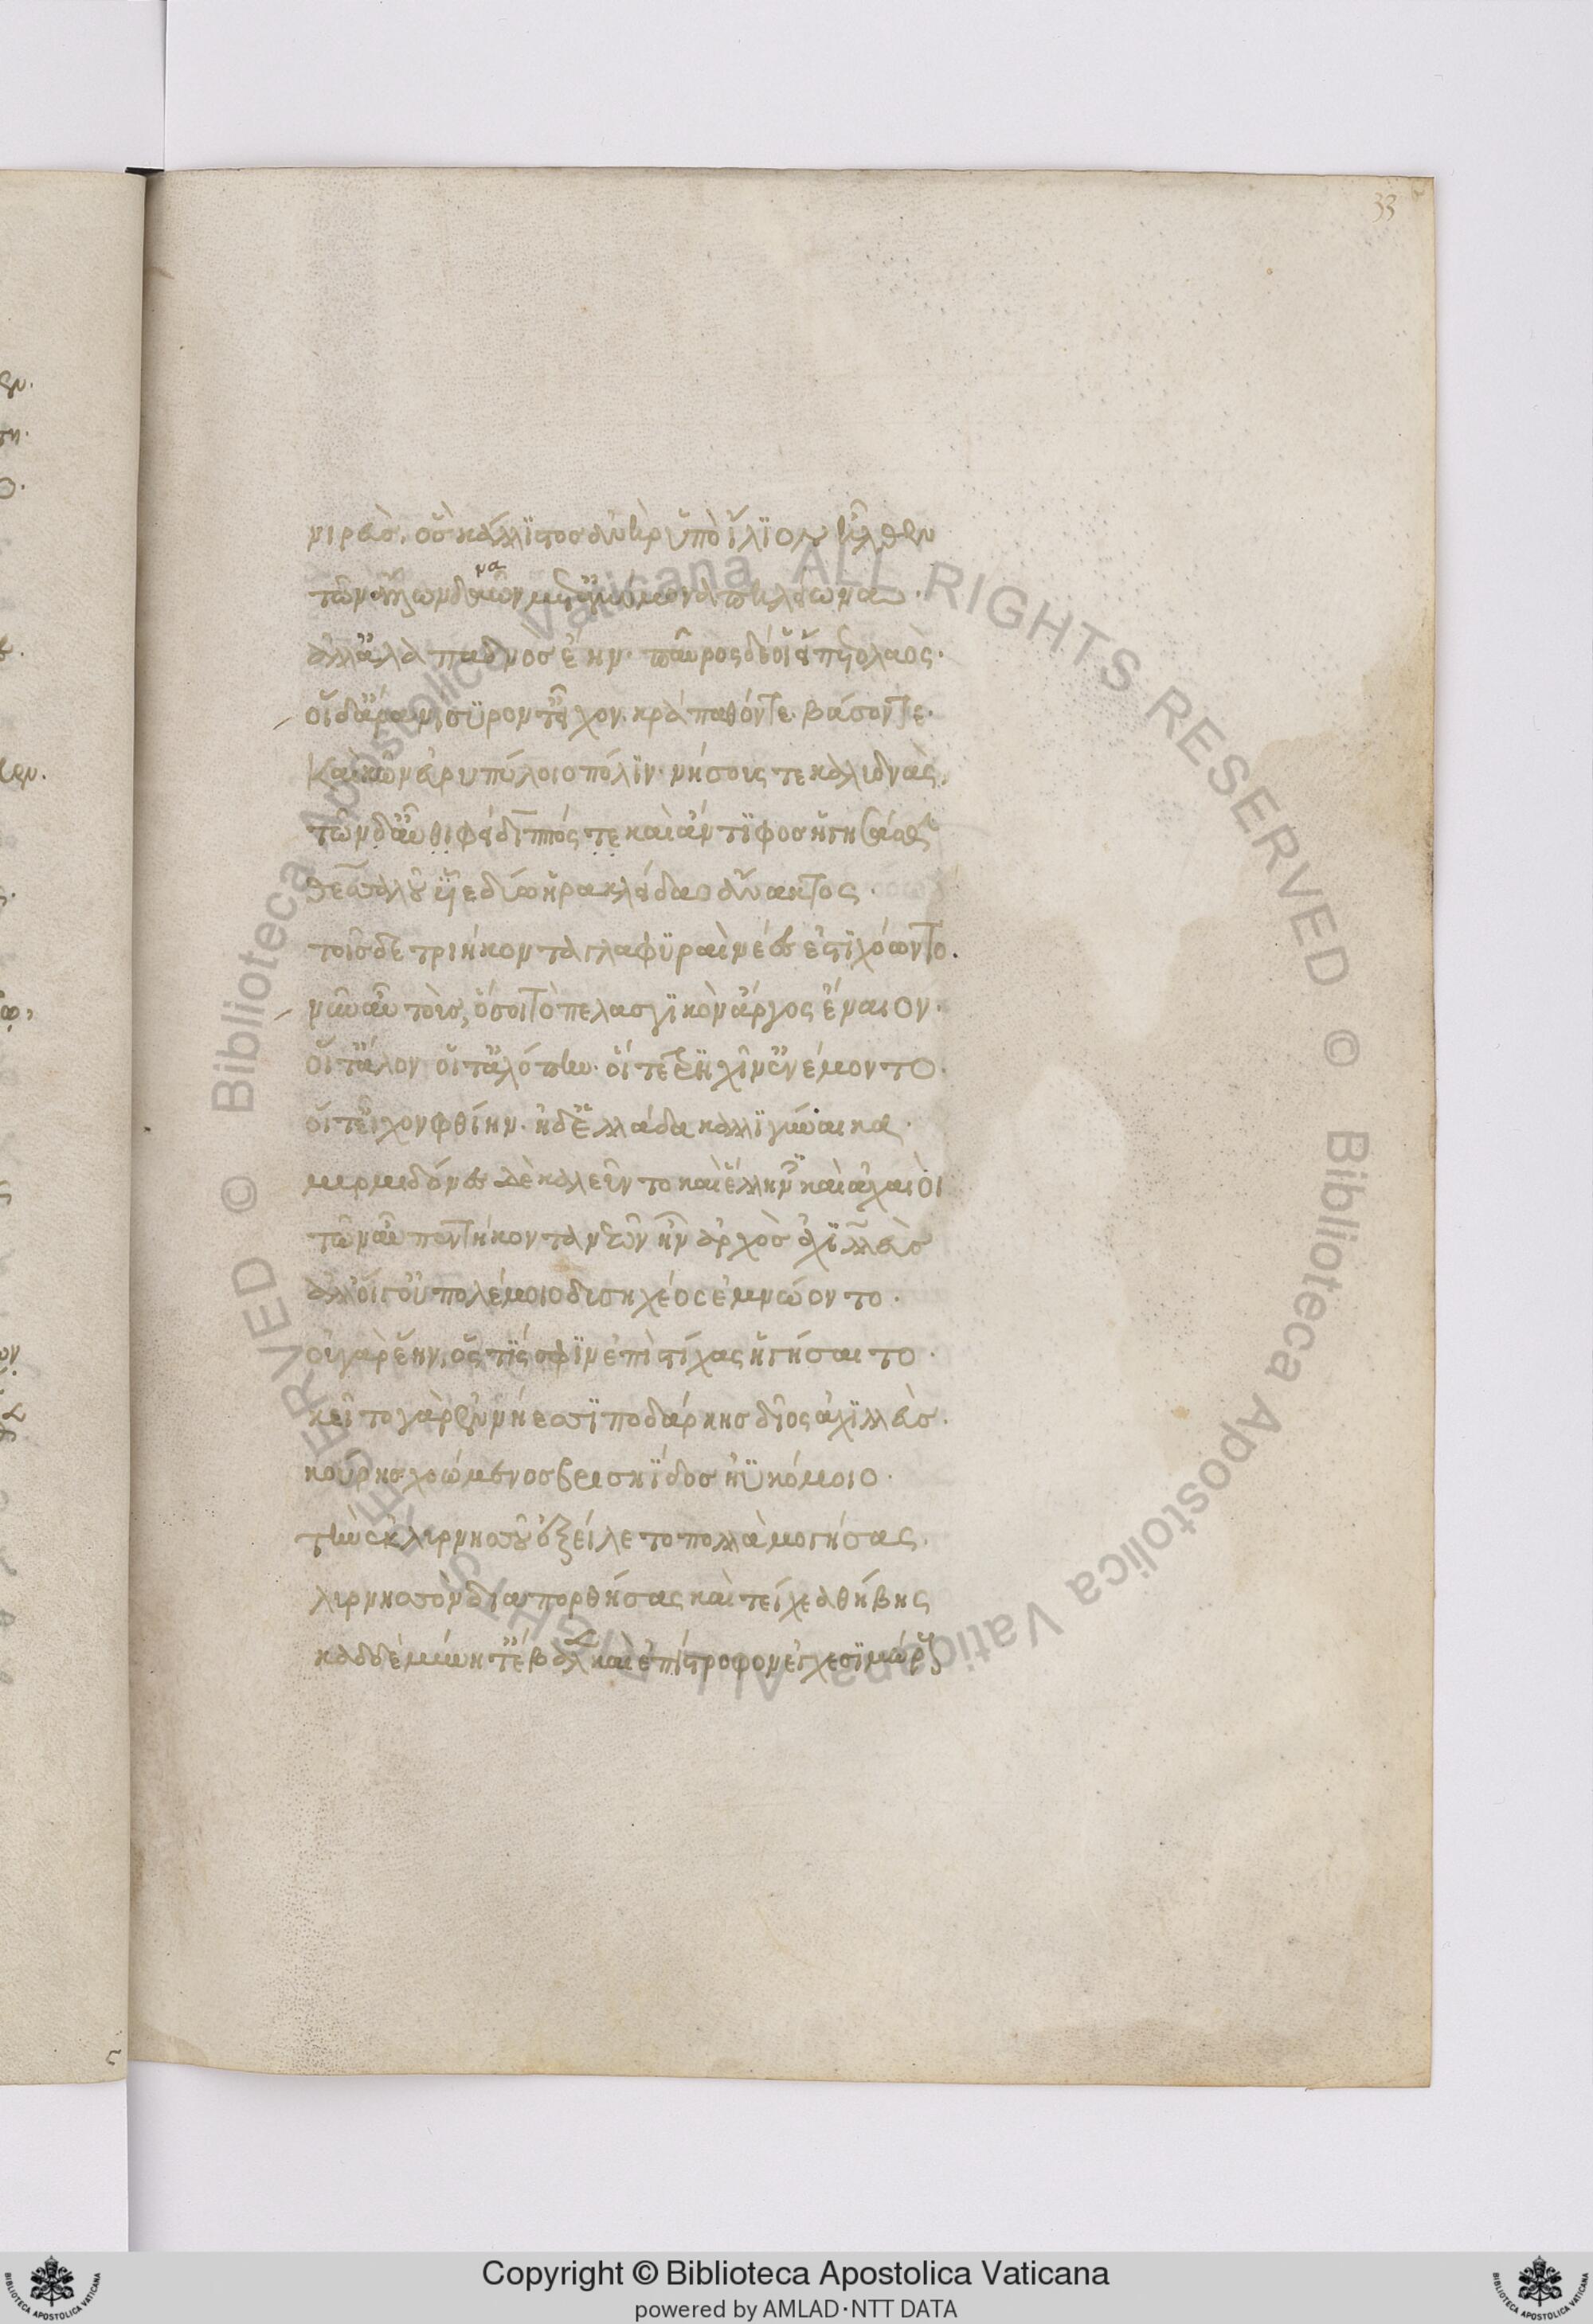 33
νιρεὺς, ὃς κάλλϊστος ἀνὴρ ὑπὸ ἴλϊον ἦλθεν
τῶν ἄλλων δαναῶν μετ' ἀμύμονα πηλείωνα.
ἀλλ' ἀλαπαδνὸς ἔην. παῦρος δέ οἱ εἵπετο λαὸς.
οἳ δ' ἄρα νίσϋρον τ' εἶχον. κράπαθόν τε. κάσον τε.
καὶ κῶν εὐρυπύλοιο πόλϊν. νήσους τε καλύδνας,
τῶν δ' αὖ φείδιππός τε καὶ ἄντϊφος ἡγησάσθην
θεσσαλοῦ υἷε δύω ἡρακλείδαο ἄνακτος.
τοῖς δὲ τριήκοντα γλαφϋραὶ νέες ἐστϊχόωντο.
νῦν αὖ τοὺς, ὅσοι τὸ πελασγϊκὸν ἄργος ἔναιον.
οἵ τ' ἄλον οἵ τ' ἀλόπην. οἵ τε τρηχῖν' ἐνέμοντο.
οἵ τ' εἶχον φθίην. ἠδ' ἑλλάδα καλλϊγύναικα.
μυρμιδόνες δὲ καλεῦντο καὶ ἕλληνες καὶ ἀχαιοὶ
τῶν αὖ πεντήκοντα νεῶν ἦν ἀρχὸς ἀχϊλλεὺς
ἀλλ' οἵ γ' οὐ πολέμοιο δυσηχέος ἐμνώοντο.
οὐ γὰρ ἔην, ὅς τίς σφϊν ἐπὶ στίχας ἡγήσαιτο.
κεῖτο γὰρ ἐν νήεσσϊ ποδάρκης δῖος ἀχϊλλεὺς.
κούρης χωόμενος βρισηΐδος ἠϋκόμοιο.
τὴν ἐκ λυρνησσοῦ ἐξείλετο πολλὰ μογήσας.
λυρνησσὸν διαπορθήσας καὶ τείχεα θήβης
καδδὲ μύνητ' ἔβαλε καὶ ἐπίστροφον ἐγχεσϊμώρους
Copyright © Biblioteca Apostolica Vaticana
powered by AMLAD·NTT DATA